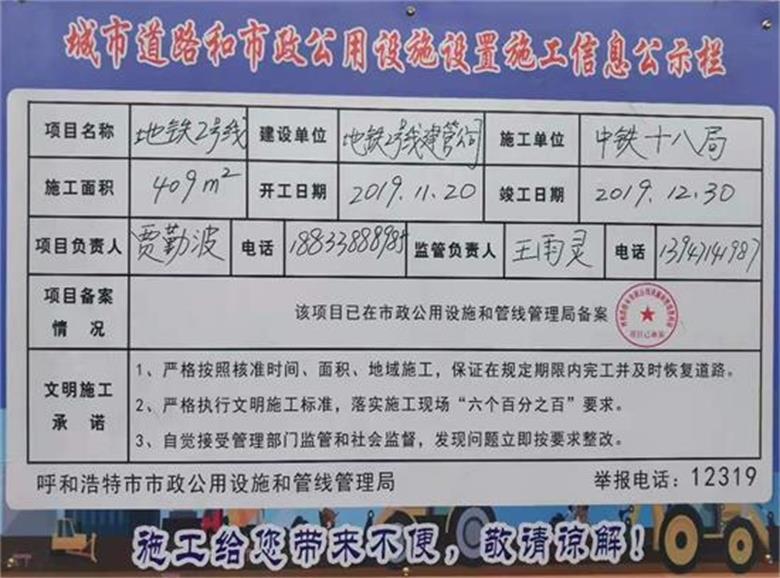 城市道路和市政公用设施设置施工信息公示栏
项目名称 地铁2号线 建设单位 地铁2号线建管公司 施工单位 中铁十八局
施工面积 409m² 开工日期 2019.11.20 竣工日期 2019.12.30
项目负责人 贾勤波 电话 18833888985 监管负责人 王雨灵 电话 13947141987
项目备案
情况
该项目已在市政公用设施和管线管理局备案
文明施工
承诺
1、严格按照核准时间、面积、地域施工，保证在规定期限内完工并及时恢复道路。
2、严格执行文明施工标准，落实施工现场“六个百分之百”要求。
3、自觉接受管理部门监管和社会监督，发现问题立即按要求整改。
呼和浩特市市政公用设施和管线管理局 举报电话：12319
施工给您带来不便，敬请谅解！